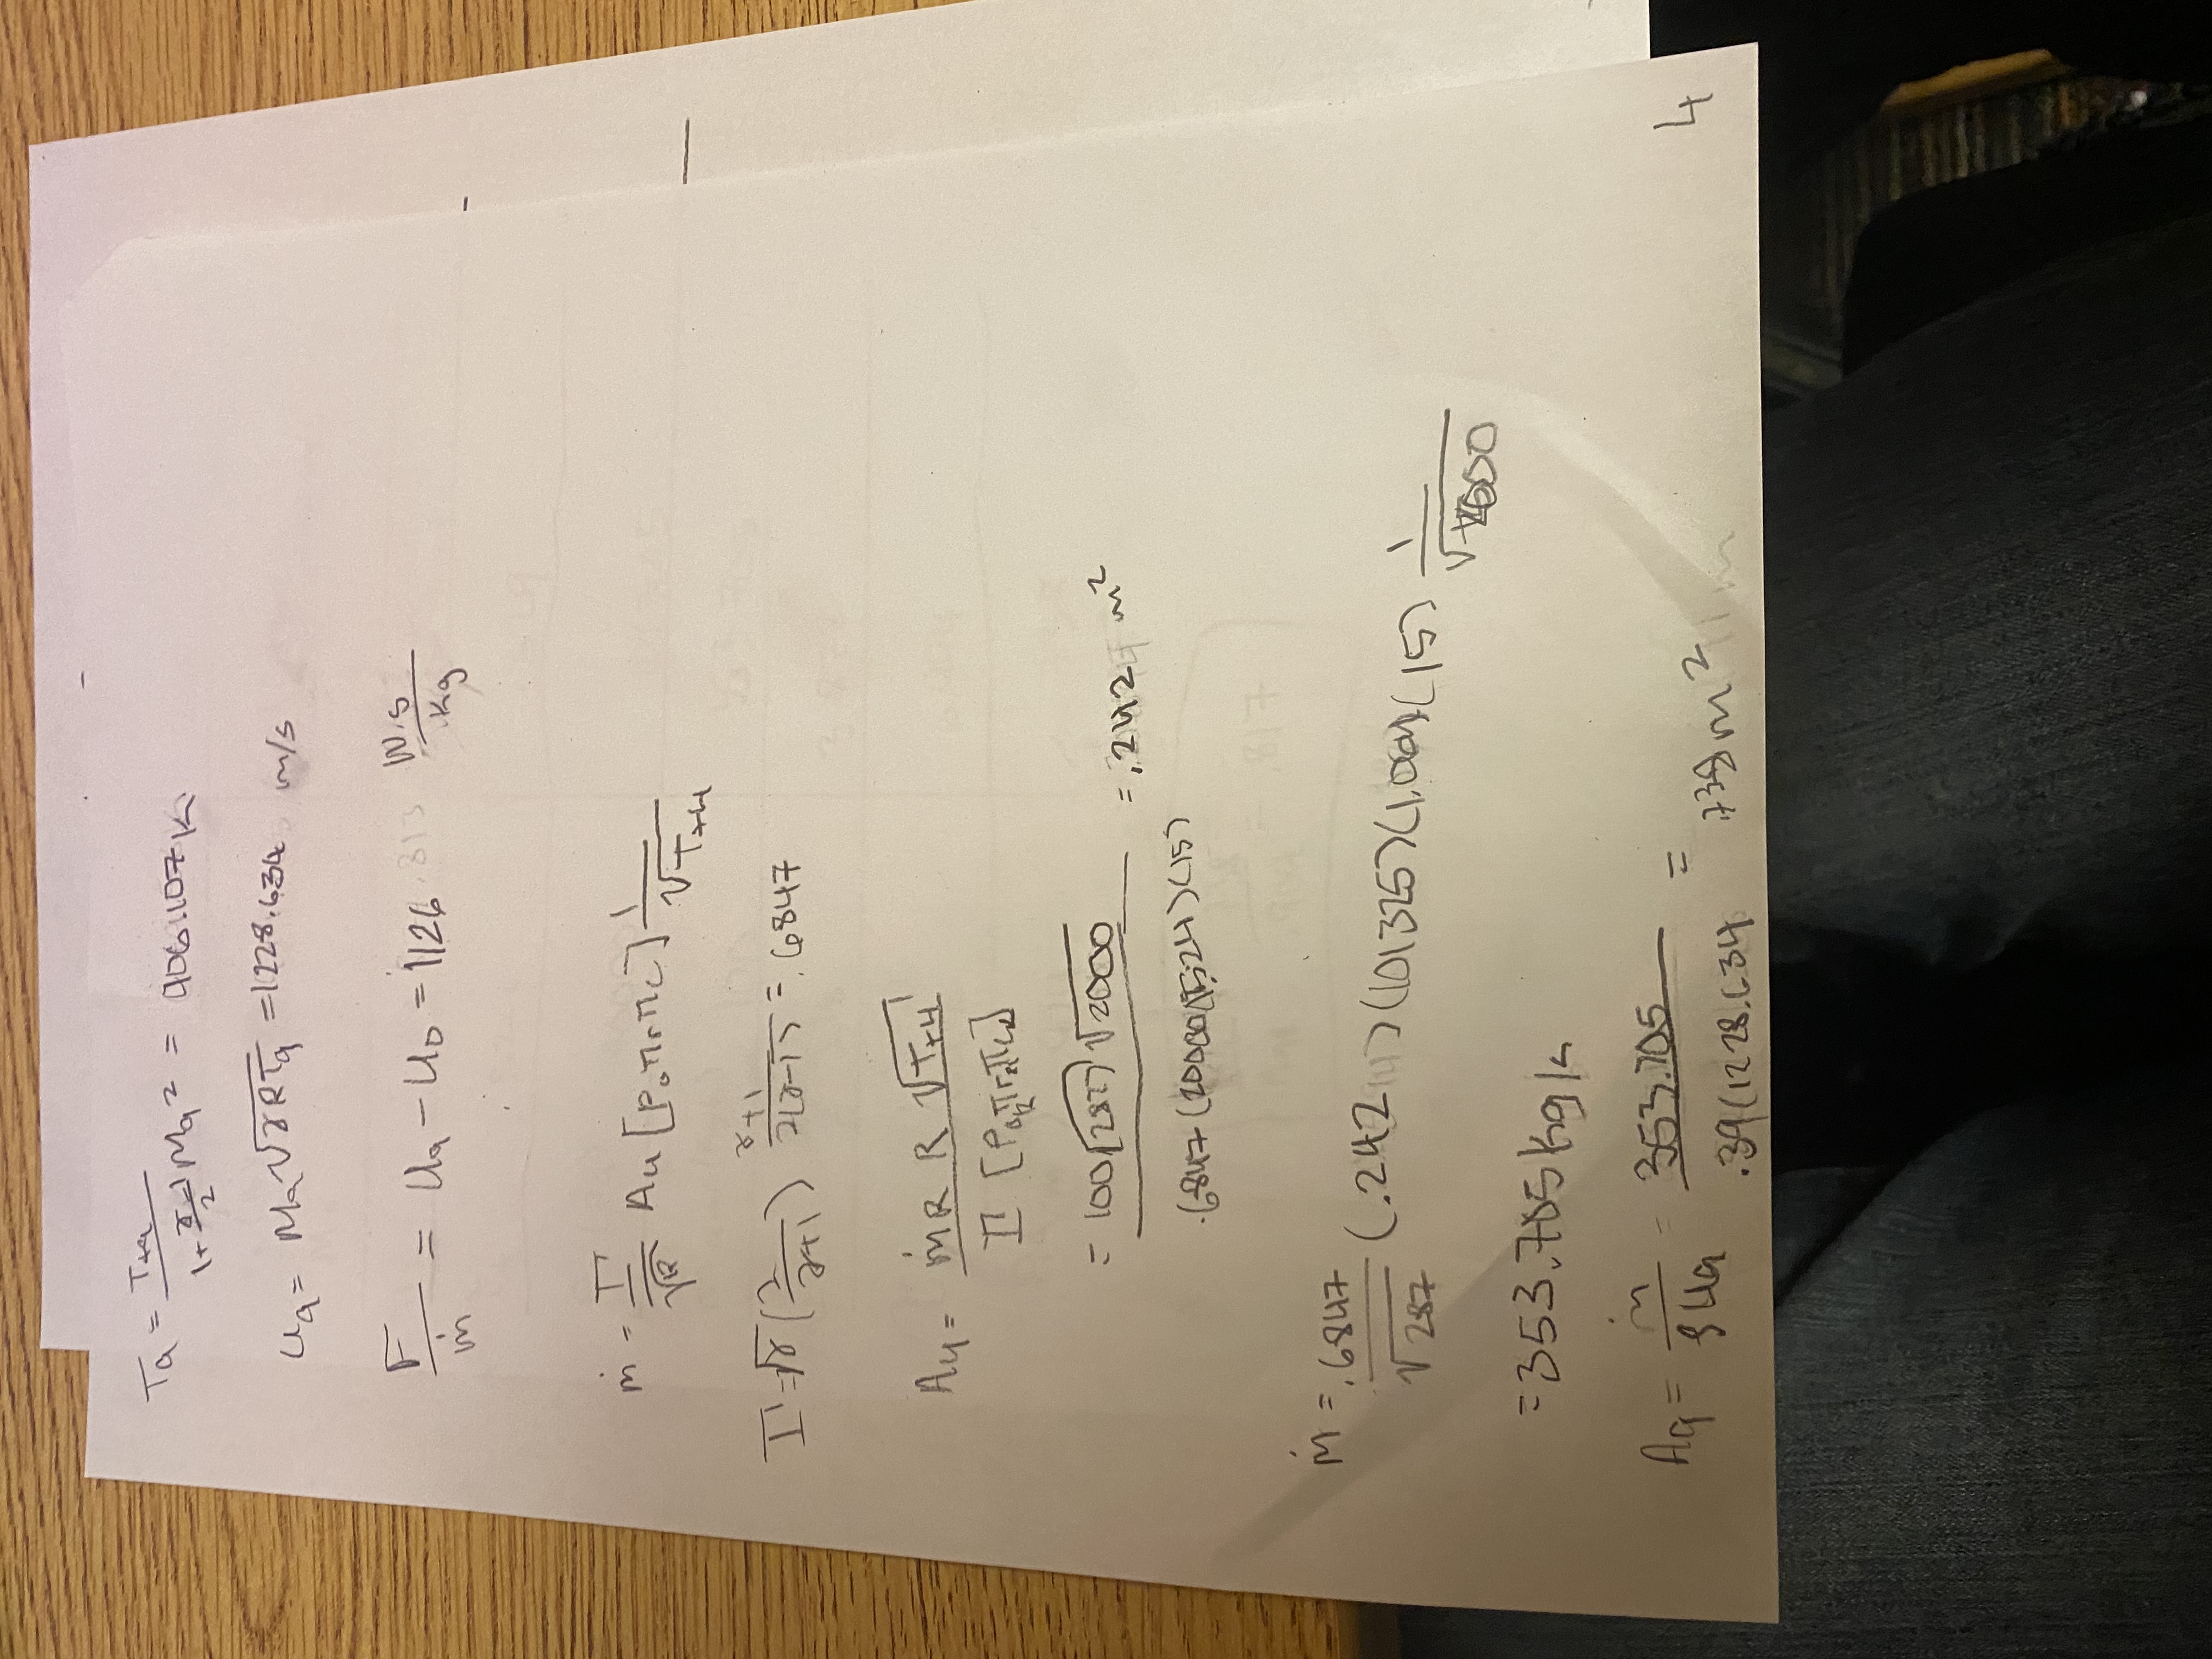 T9 = Tt9 / (1 + (γ-1)/2 M9²) = 906.107 K
u9 = M9 √(γRT9) = 1228.634 m/s
F/ṁ = U9 - U0 = 1126 N.s/kg
ṁ = Γ/√R A4 [P0 πr πc] 1/√Tt4
Γ = √γ (2/(γ+1)) (γ+1)/(2(γ-1)) = .6847
A4 = ṁR R √Tt4 / Γ [P0R πrR πcR]
= 100 √(287) √2000 / .6847 (20000)(1.524)(15) = .242 m²
ṁ = .6847/√287 (.242)(101325)(1.064)(15) 1/√1600
= 353.705 kg/s
A9 = ṁ/ρu9 = 353.705 / .39(1228.634 = .738 m²
4